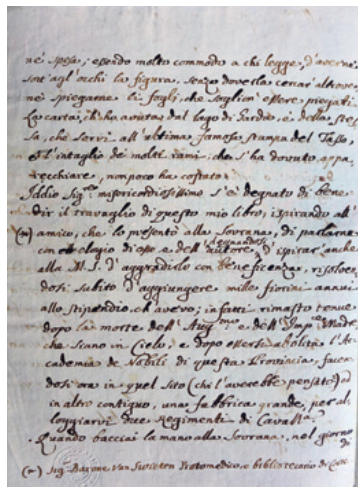 né spesa; essendo molto commodo a chi legge, d'averne
sott'agl'occhi la figura, senza doverla cercar'altrove,
né spiegarne li fogli, che soglion'essere piegati.
La carta, ch'ho avuta dal lago di Garda, è della stes-
sa, che servì all'ultima famosa stampa del Tasso,
e l'intaglio de' molti rami, che s'ha dovuto appa-
recchiare, non poco ha costato.
Iddio Sig.re misericordiosissimo s'è degnato di bene-
dir il travaglio di questo mio libro, ispirando all'
(*) amico, che lo presentò alla Sovrana, di parlarne
con elogio di esso e dell'autore, degnandosi d'ispirar'anche
alla M. S. d'aggradirlo con beneficenza, risolven-
dosi subito d'aggiungere mille fiorini annui
allo stipendio, ch'avevo, infatti rimasto tenue
dopo la morte dell'Aug.mo e dell'Imp.e Madre
che siano in Cielo, e dopo essersi abolita l'Ac-
cademia de Nobili di questa Provincia, facen-
dosi ora in quel sito (chi l'averebbe pensato?) ed
in altro contiguo, una fabbrica grande, per al-
loggiarvi due Regimenti di Cavall.a
Quando bacciai la mano alla Sovrana, nel giorno
di
(*) Sig.r Barone Van Swieten Protomedico, e bibliotecario di Corte